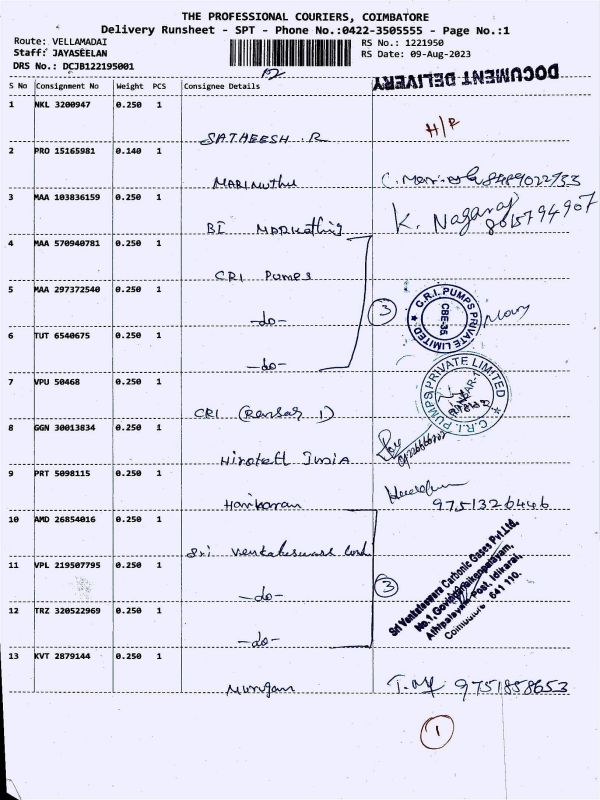 THE PROFESSIONAL COURIERS, COIMBATORE
Delivery Runsheet - SPT - Phone No.:0422-3505555 - Page No.:1
Route: VELLAMADAI
RS No.: 1221950
Staff: JAYASEELAN
RS Date: 09-Aug-2023
DRS No.: DCJB122195001
DOCUMENT DELIVERY
S No Consignment No Weight PCS Consignee Details
1 NKL 3200947 0.250 1
SATHEESH .R H/R
2 PRO 15165981 0.140 1
MARIMUTHU 8489022733
3 MAA 103836159 0.250 1
BI K. Nagaraj
8015794907
4 MAA 570940781 0.250 1
CRI Pumps
5 MAA 297372540 0.250 1
-do- 3
C.R.I. PUMPS PRIVATE LIMITED
CBE-35
6 TUT 6540675 0.250 1
-do-
7 VPU 50468 0.250 1
CRI (Ransar 1)
C.R.I. PUMPS PRIVATE LIMITED
8 GGN 30013834 0.250 1
India
9 PRT 5098115 0.250 1
Hariharan 9751326446
10 AMD 26854016 0.250 1
Sri
11 VPL 219507795 0.250 1
-do- 3
Sri Venkateswara Carbonic Gases Pvt.Ltd,
No.1, Govindanaikenpalayam,
Athipalayam Post, Idikarai,
Coimbatore - 641 110.
12 TRZ 320522969 0.250 1
-do-
13 KVT 2879144 0.250 1
Murugan 9751858653
1